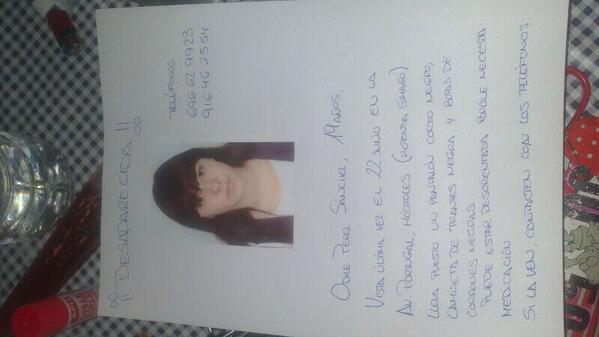 ¡¡DESAPARECIDA!!
TELÉFONOS
696 62 9923
916 46 25 54
PÉREZ SÁNCHEZ, 19 AÑOS.
VISTA ÚLTIMA VEZ EL 22 JUNIO EN LA
AV PORTUGAL, MÓSTOLES (ROTONDA SIMAGO)
LLEVA PUESTO UN PANTALÓN CORTO NEGRO,
CAMISETA DE TIRANTES NEGRA Y BOTAS DE
CORDONES NEGRAS.
PUEDE ESTAR DESORIENTADA PORQUE NECESITA
MEDICACIÓN.
SI LA VEN, CONTACTEN CON LOS TELÉFONOS.